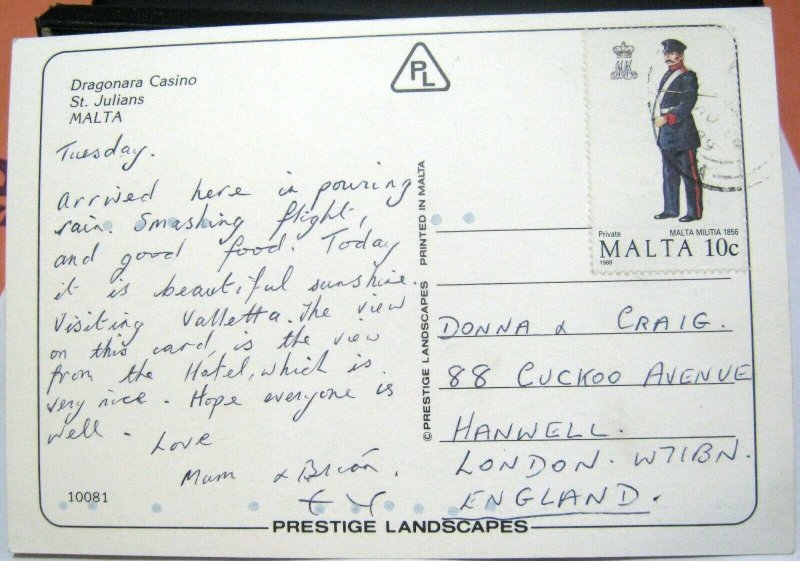 Dragonara Casino
St. Julians
MALTA
PL
Tuesday.
Arrived here in pouring
rain. Smashing flight,
and good food. Today
it is beautiful sunshine.
Visiting Valletta. The view
on this card, is the view
from the Hotel, which is
very nice. Hope everyone is
well.
Love
Mum & Brian.
10081
PRESTIGE LANDSCAPES
© PRESTIGE LANDSCAPES PRINTED IN MALTA
Private MALTA MILITIA 1856
MALTA 10c
1989
DONNA & CRAIG.
88 CUCKOO AVENUE
HANWELL.
LONDON. W71BN.
ENGLAND.